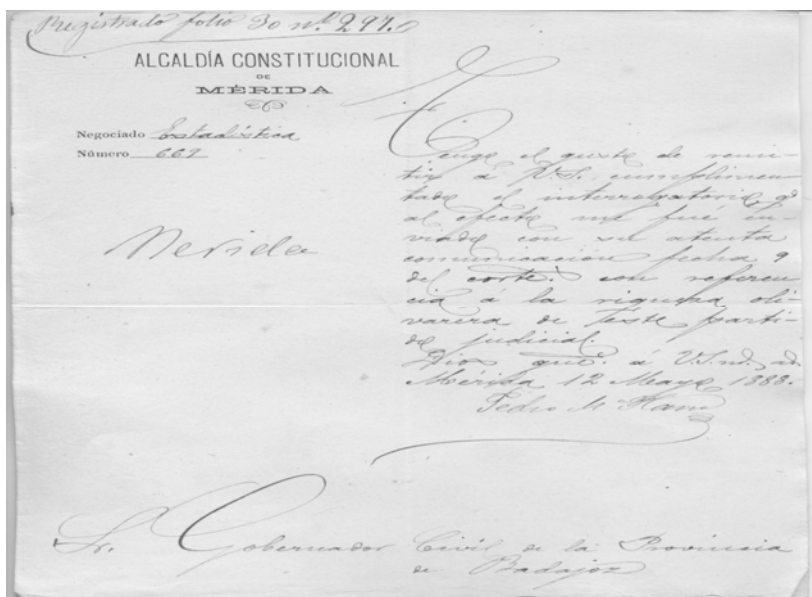 Registrado folio 30 nº 297.
ALCALDÍA CONSTITUCIONAL
DE
MÉRIDA
Negociado Estadística
Número 669
Merida
Tengo el gusto de remi-
tir á V.S. cumplimen-
tado el interrogatorio q^e
al efecto me fue en-
viado con su atenta
comunicación fecha 9
del corte. con referen
cia á la riqueza oli-
varera de este parti-
do judicial.
Dios gue. á V.S. m. a.
Mérida 12 Mayo 1888.
Pedro M
Sr. Gobernador Civil de la Provincia
de Badajoz